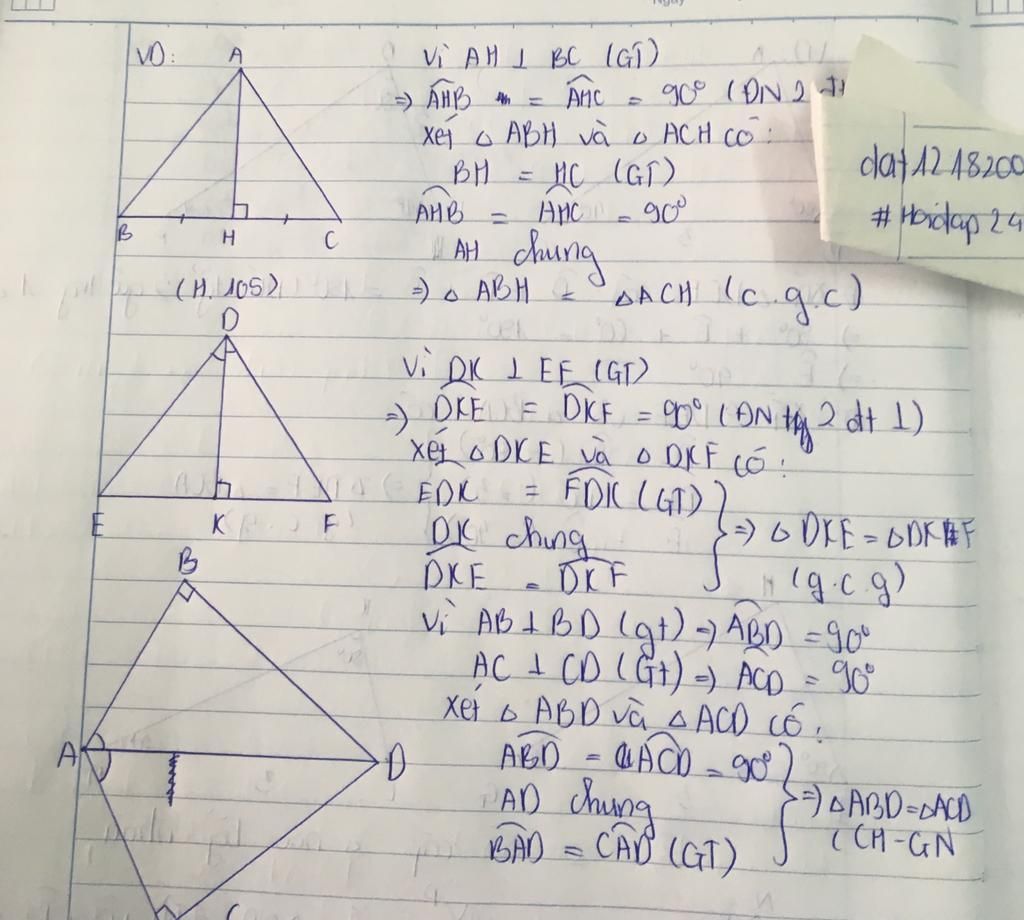 VD:
A
B
H
C
Vì AH ⊥ BC (GT)
=> AHB = AHC = 90° (ĐN 2 đt
xét △ ABH và △ ACH có:
BH = HC (GT)
AHB = AHC = 90°
AH chung
=> △ ABH = △ACH (c.g.c)
dat1218200
#Hoidap24
(H.105)
D
E
K
F
Vì DK ⊥ EF (GT)
=> DKE = DKF = 90° (ĐN 2 đt ⊥)
xét △ DKE và △ DKF có:
EDK = FDK (GT)
DK chung
DKE = DKF
=> △ DKE = △DKF
(g.c.g)
B
A
D
C
Vì AB ⊥ BD (gt) => ABD = 90°
AC ⊥ CD (Gt) => ACD = 90°
xét △ ABD và △ ACD có:
ABD = ACD = 90°
AD chung
BAD = CAD (GT)
=> △ABD = △ACD
(CH-GN